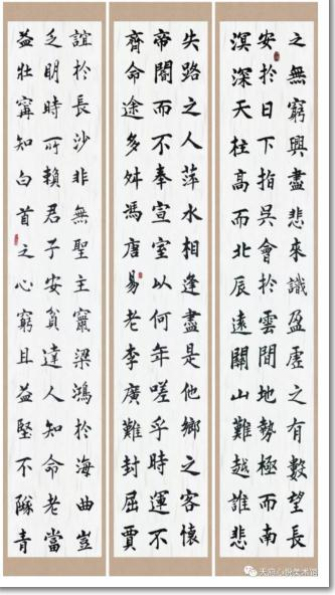 之無窮興盡悲來識盈虛之有數望長
安於日下指吳會於雲間地勢極而南
溟深天柱高而北辰遠關山難越誰悲
失路之人萍水相逢盡是他鄉之客懷
帝閽而不奉宣室以何年嗟乎時運不
齊命途多舛馮唐易老李廣難封屈賈
誼於長沙非無聖主竄梁鴻於海曲豈
乏明時所賴君子安貧達人知命老當
益壯寧知白首之心窮且益堅不墜青